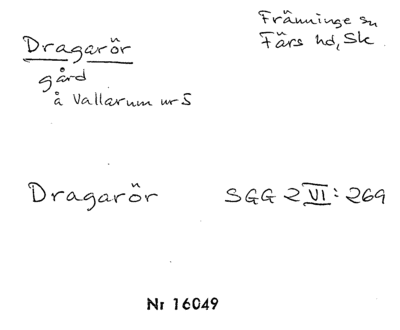 Dragarör
gård
å Vallarum nr 5
Fränninge sn
Färs hd, Sk
Dragarör SGG 2 VI: 269
Nr 16049